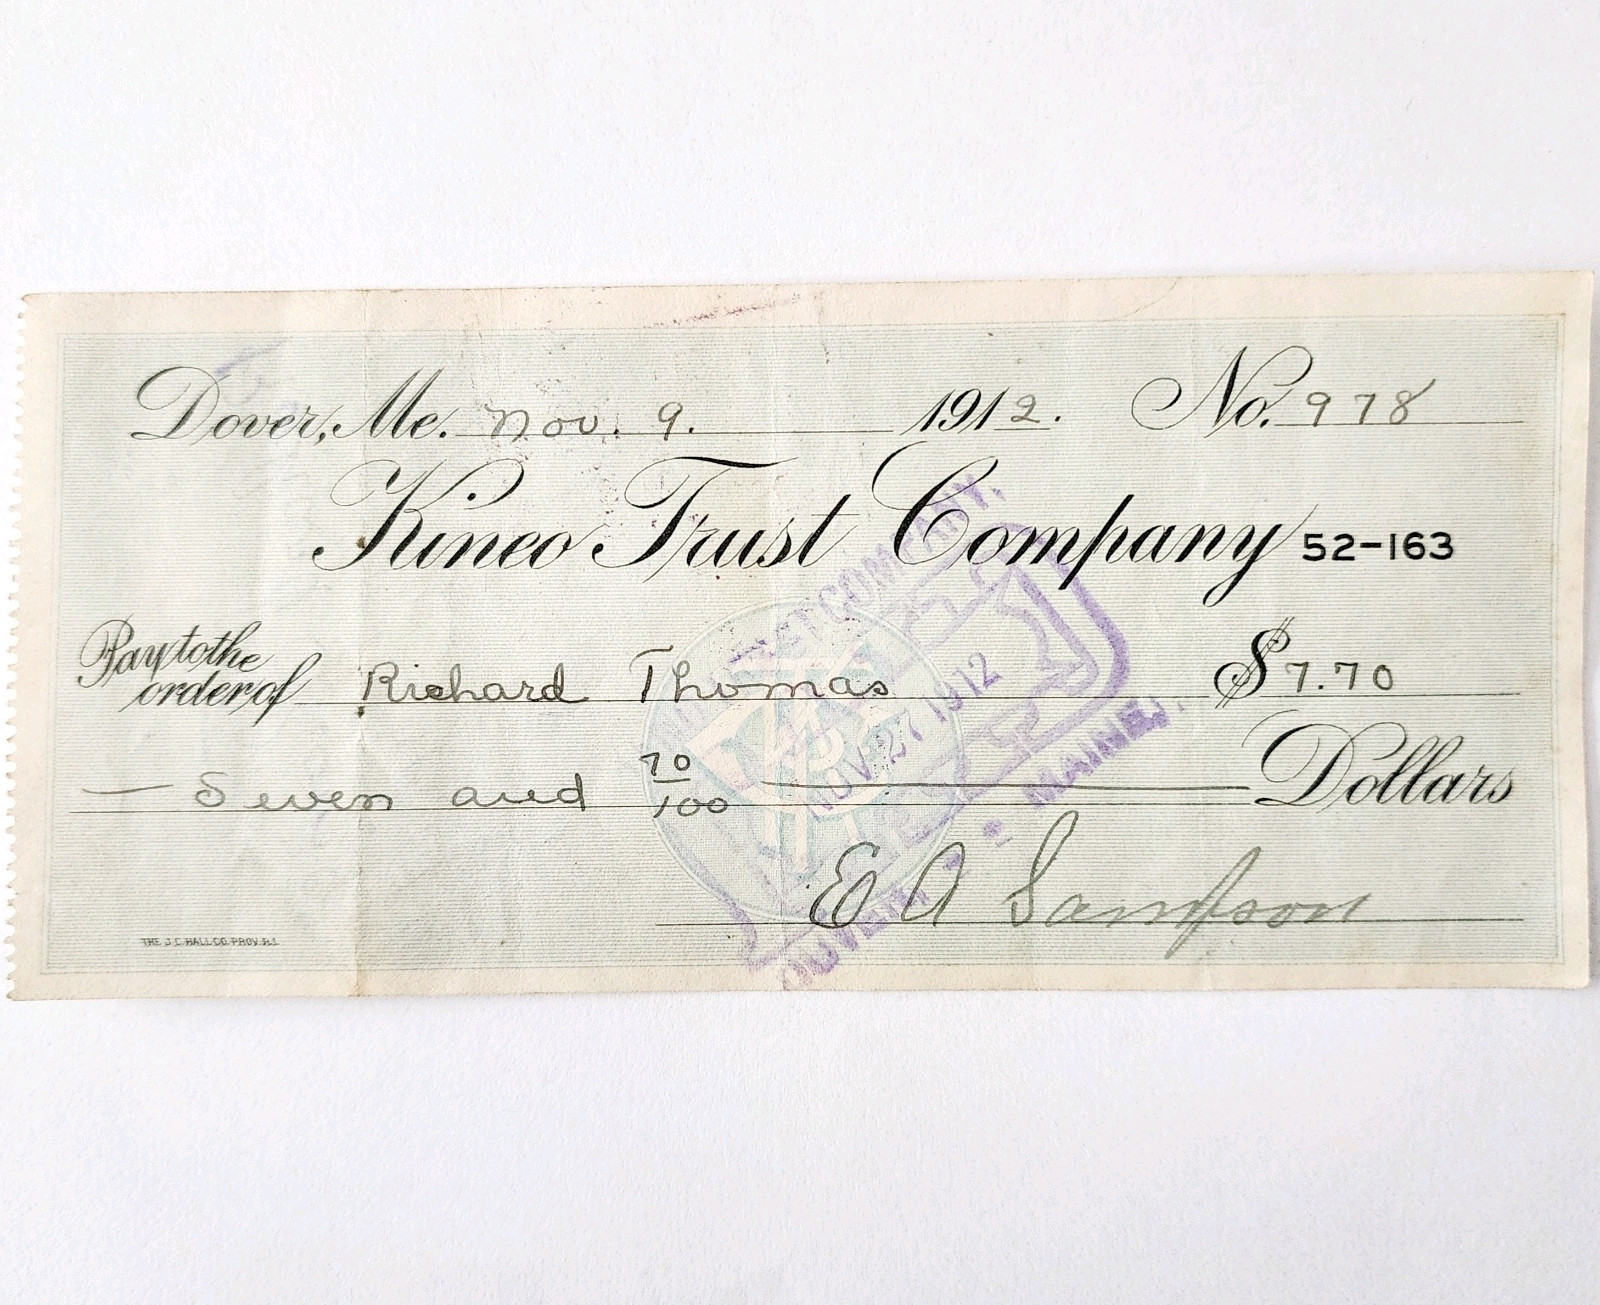 Dover, Me. Nov. 9. 1912. No. 978
Kineo Trust Company 52-163
Pay to the
order of Richard Thomas $7.70
Seven and 70/100 Dollars
E A Sampson
THE J. C. HALL CO. PROV. R.I.
TRUST COMPANY,
NOV 27 1912
DOVER, MAINE.